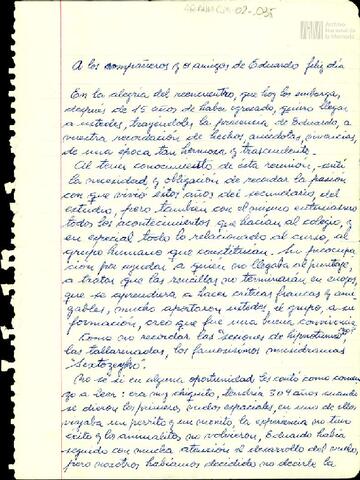 02-035
Archivo
Nacional de
la Memoria
A los compañeros y amigos de Eduardo feliz día
En la alegría del reencuentro, que hoy los embarga,
después de 15 años de haber egresado, quiero llegar
a ustedes, trayéndoles la presencia de Eduardo, a
vuestra recordación de hechos, anécdotas, vivencias,
de una época tan hermosa y trascendente.
Al tener conocimiento de esta reunión, sentí
la necesidad y obligación de recordar la pasión
con que vivió estos años del secundario, del
estudio, pero también con el mismo entusiasmo
todos los acontecimientos que hacían al colegio, y
en especial todo lo relacionado al curso, al
grupo humano que constituían. Su preocupa
ción por ayudar a quien no llegaba al puntaje,
a tratar que las rencillas no terminaran en enojos,
que se aprendiera a hacer críticas francas y ami
gables, mucho aportaron ustedes, el grupo, a su
formación, creo que fué una buena convivencia
Como no recordar las "sesiones de hipnotismo",
las tallarinadas, los famosísimos
"Sextozepro".
No sé si en alguna oportunidad les contó como comen
zó a leer: era muy chiquito, tendría 3 o 4 años cuando
se dieron los primeros vuelos espaciales, en uno de ellos
viajaba un perrito y un monito, la experiencia no tuvo
éxito y los animalitos no volvieron, Eduardo había
seguido con mucha atención el desarrollo del vuelo,
pero nosotros habíamos decidido no decirle la